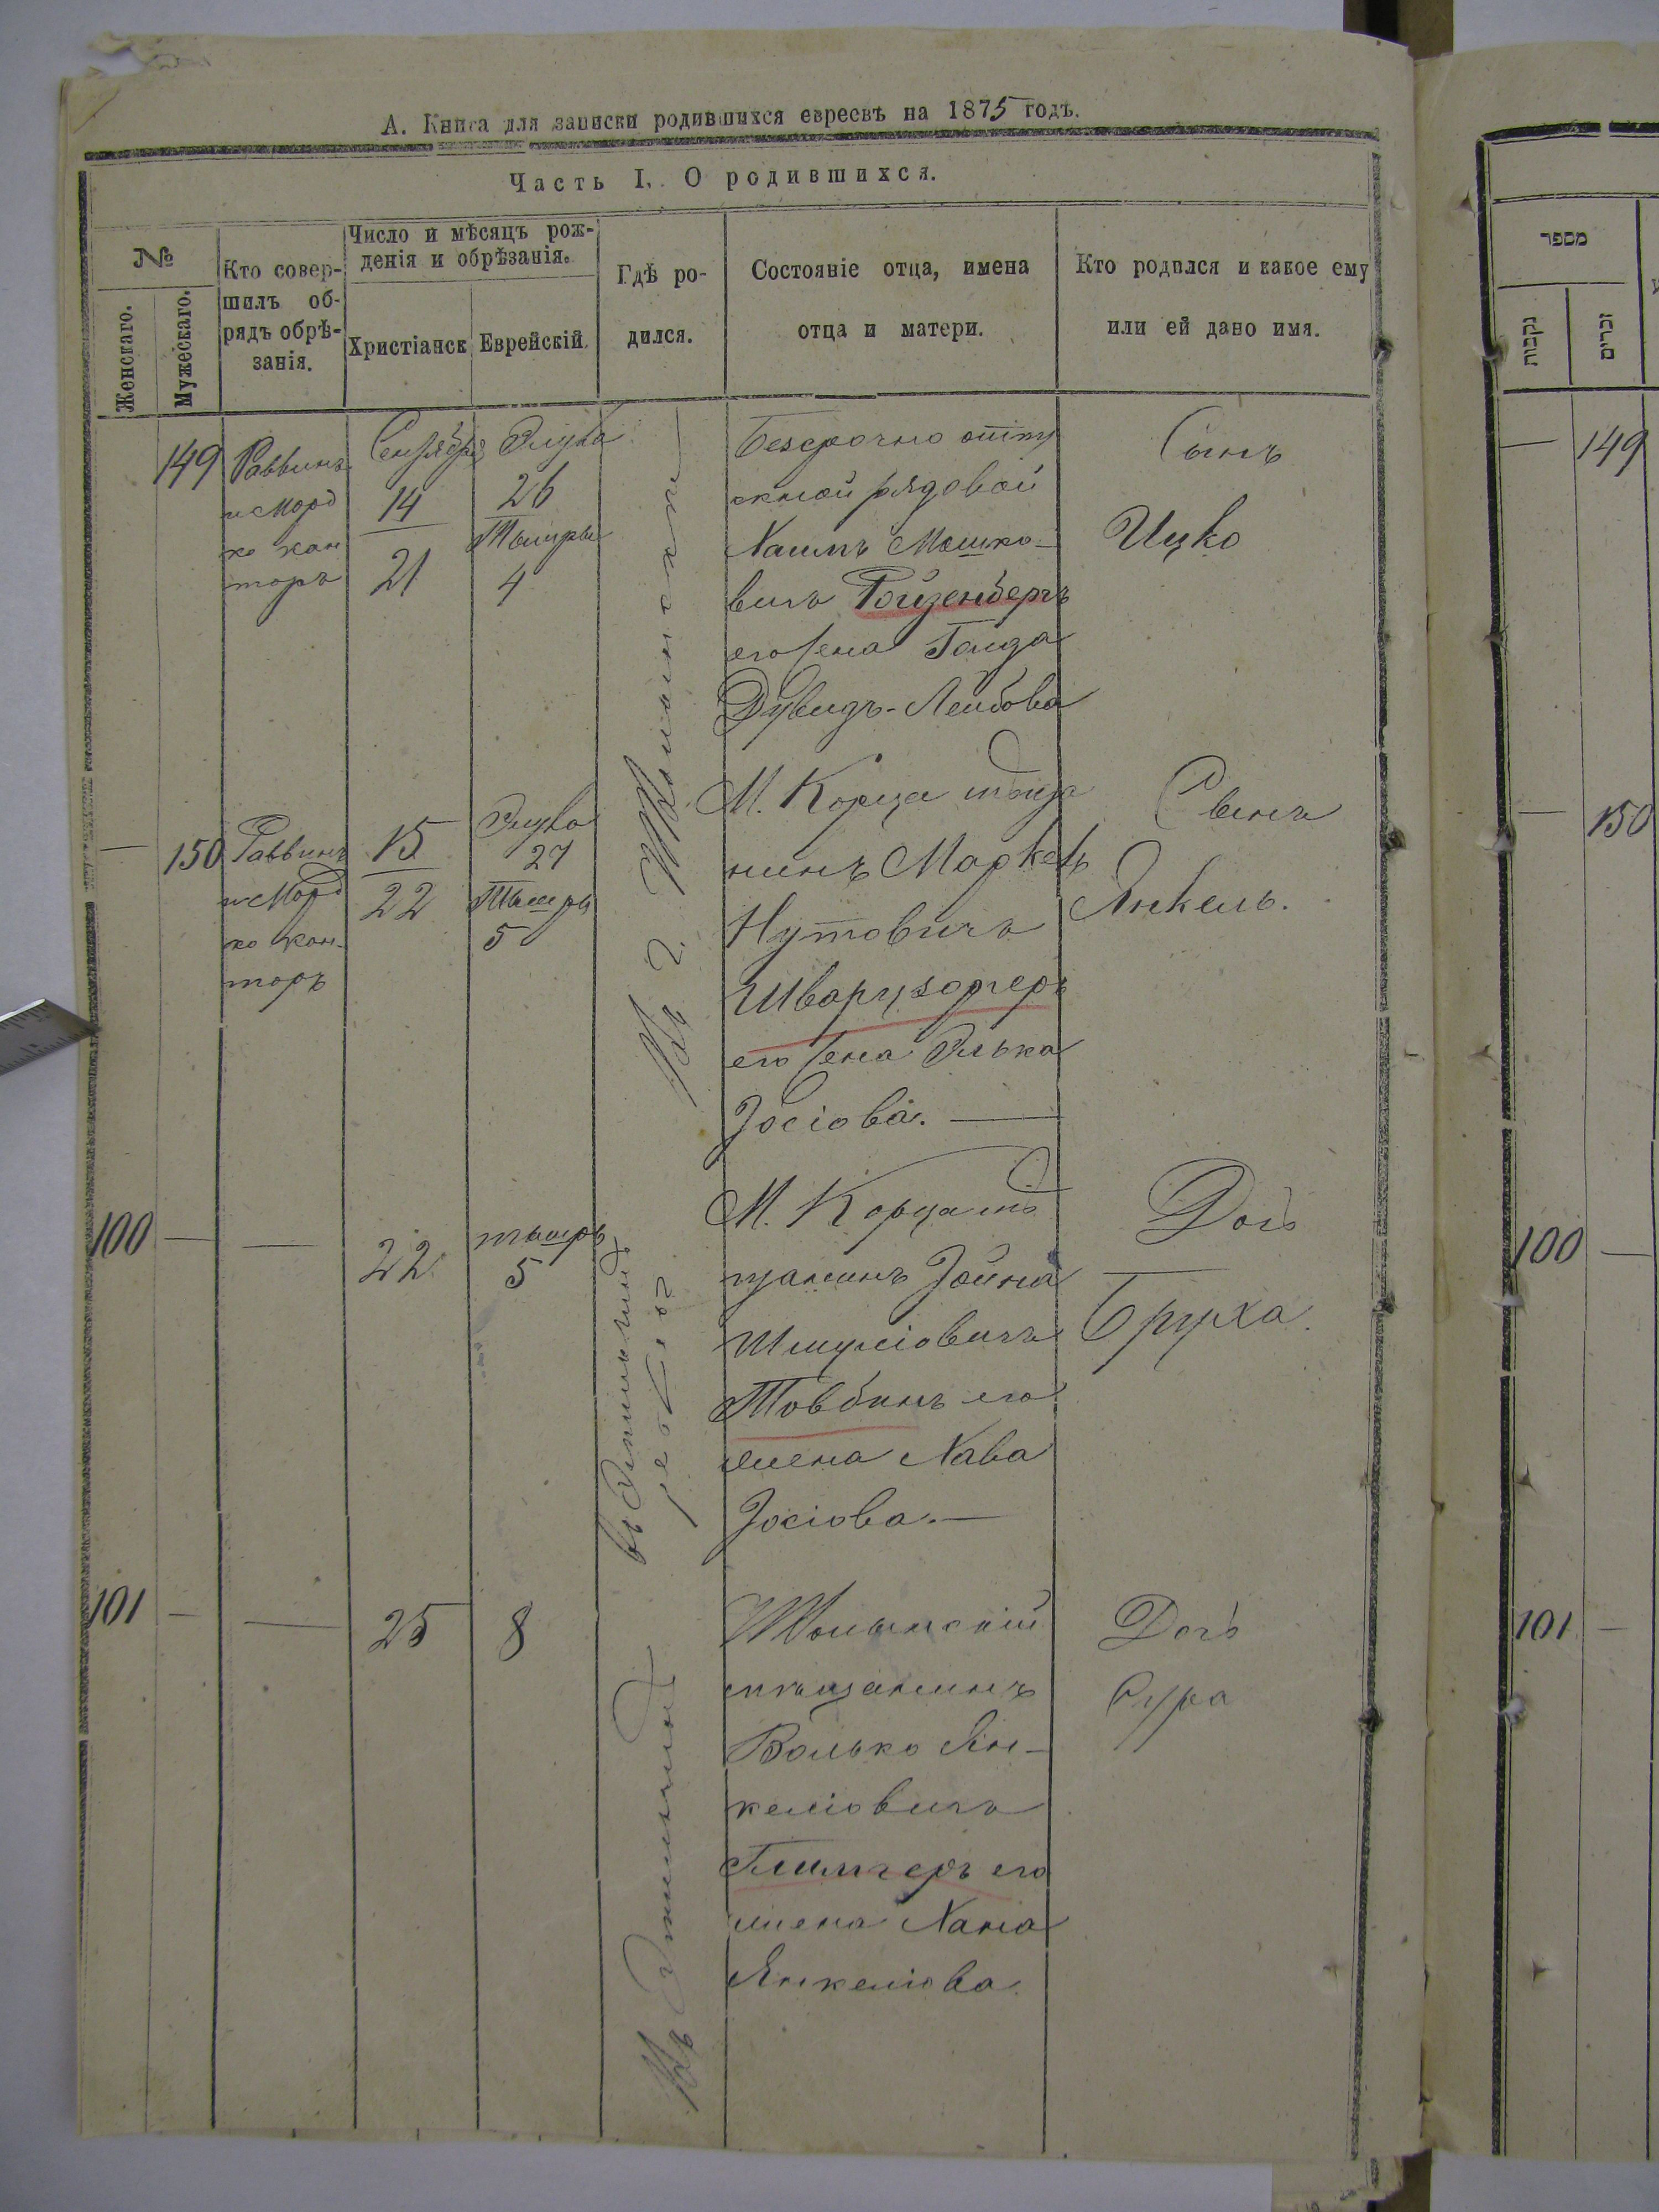 А. Книга для записки родившихся евреевъ на 1875 годъ.
Часть I. О родившихся.
№
Женскаго.
Мужескаго.
Кто совер-
шилъ об-
рядъ обрѣ-
занія.
Число и мѣсяцъ рож-
денія и обрѣзанія.
Христіанск
Еврейскій
Гдѣ ро-
дился.
Состояніе отца, имена
отца и матери.
Кто родился и какое ему
или ей дано имя.
149
Раввинъ
и Морд
ко кан
торъ
Сентября
14
21
Элула
26
Тышры
4
Безсрочно отпу
скной рядовой
Хаимъ Мошко-
вичъ Ройзенбергъ
его жена Голда
Дувидъ-Лейбова
Сынъ
Ицко
— 150
Раввинъ
и Морд
ко кан-
торъ
15
22
Элула
27
Тышры
5
М. Корца мѣща
нинъ
Нутовичъ
его жена Элька
Іосіова. —
Сынъ
Янкель.
100 —
—
22
тышры
5
М. Корца мѣ
щанинъ Іойна
Шмуліовичъ
Товбинъ его
жена Хава
Іосіова. —
Дочь
Бруха.
101 —
—
25
8
мѣщанинъ
Волько Ян-
келіовичъ
его
жена Хана
Янкеліова.
Дочь
Сура
מספר
נקבות
זכרים
— 149
— 150
100 —
101 —